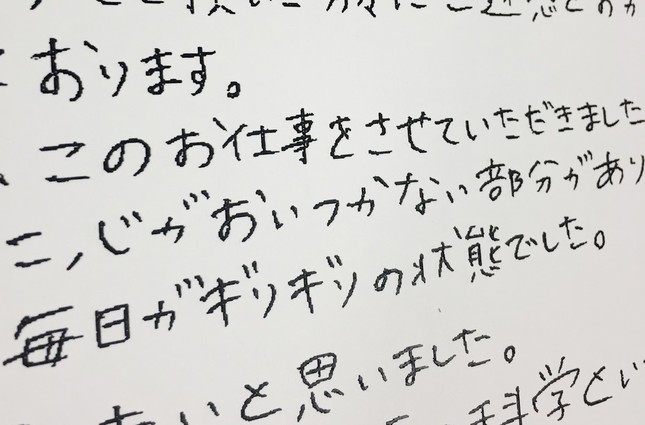 おります。
このお仕事をさせていただきました
こ,じがおいつかない部分があり
毎日がギリギリの状態でした。
いと思いました。
科学とい